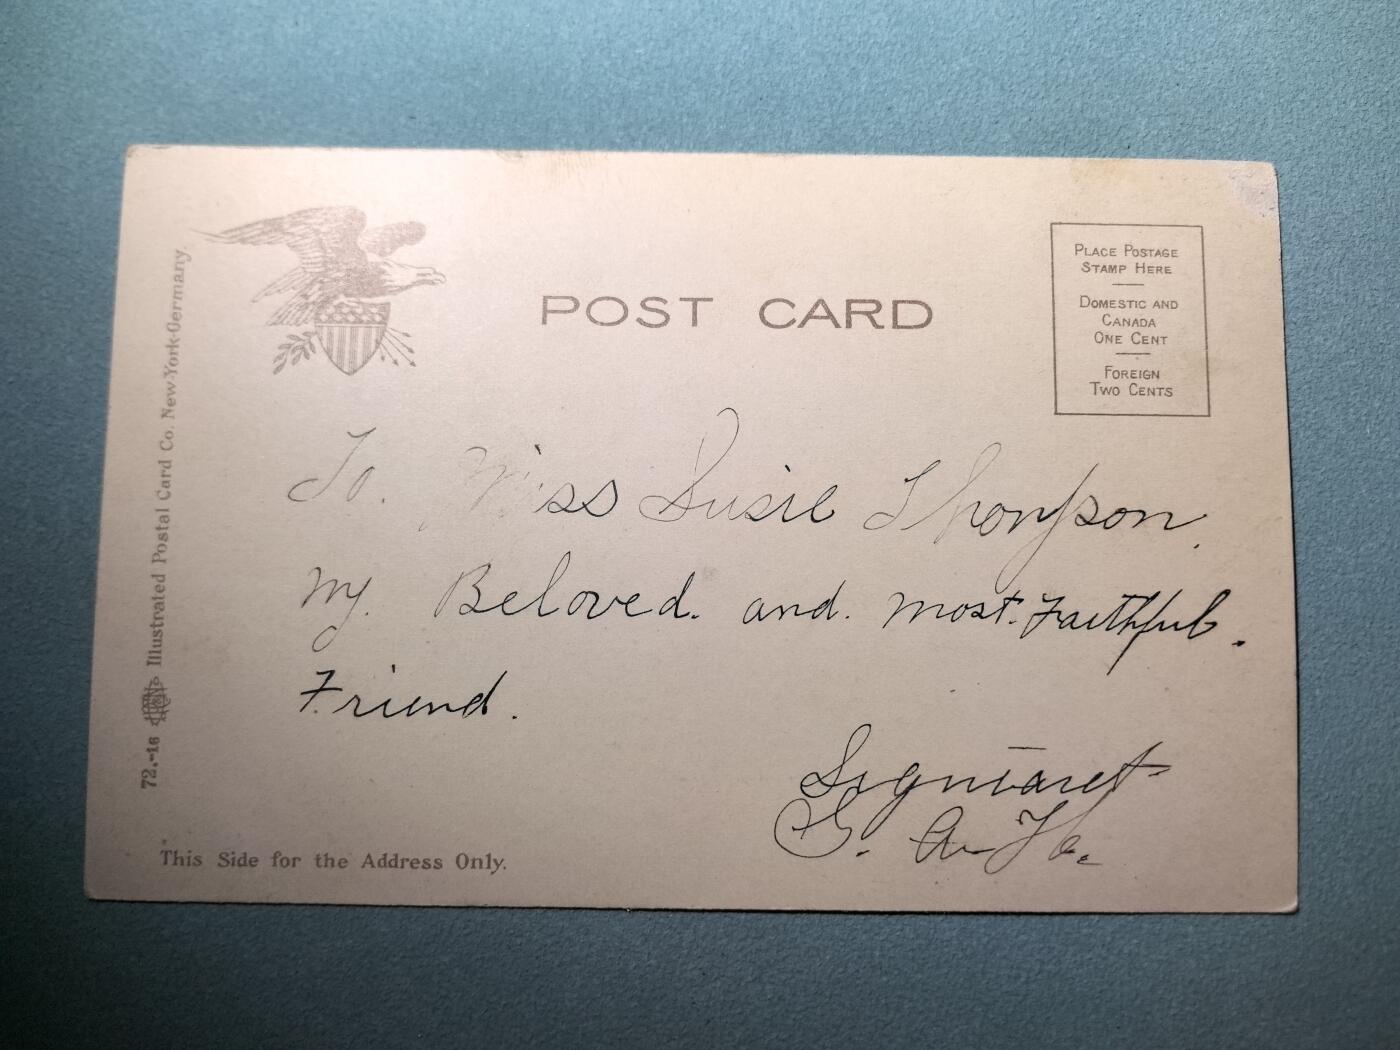 POST CARD
PLACE POSTAGE
STAMP HERE
DOMESTIC AND
CANADA
ONE CENT
FOREIGN
TWO CENTS
72.-16 Illustrated Postal Card Co. New York-Germany.
To. Miss Susie Thompson.
My. Beloved. and. most. Faithful.
Friend.
This Side for the Address Only.